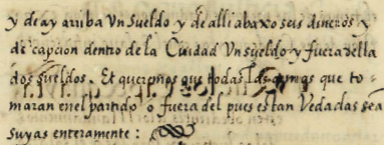 y de ay arriba Un sueldo y de alli abaxo seis dineros y
de capcion dentro de la Ciudad Un sueldo y fuera della
dos sueldos. Et queremos que todas las armas que to
maran en el partido o fuera del pues estan Vedadas sea
suyas enteramente: